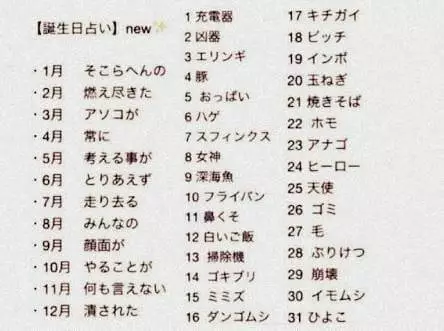 【誕生日占い】new✨
・1月 そこらへんの
・2月 燃え尽きた
・3月 アソコが
・4月 常に
・5月 考える事が
・6月 とりあえず
・7月 走り去る
・8月 みんなの
・9月 顔面が
・10月 やることが
・11月 何も言えない
・12月 潰された
1 充電器
2 凶器
3 エリンギ
4 豚
5 おっぱい
6 ハゲ
7 スフィンクス
8 女神
9 深海魚
10 フライパン
11 鼻くそ
12 白いご飯
13 掃除機
14 ゴキブリ
15 ミミズ
16 ダンゴムシ
17 キチガイ
18 ビッチ
19 インポ
20 玉ねぎ
21 焼きそば
22 ホモ
23 アナゴ
24 ヒーロー
25 天使
26 ゴミ
27 毛
28 ぶりけつ
29 崩壊
30 イモムシ
31 ひよこ